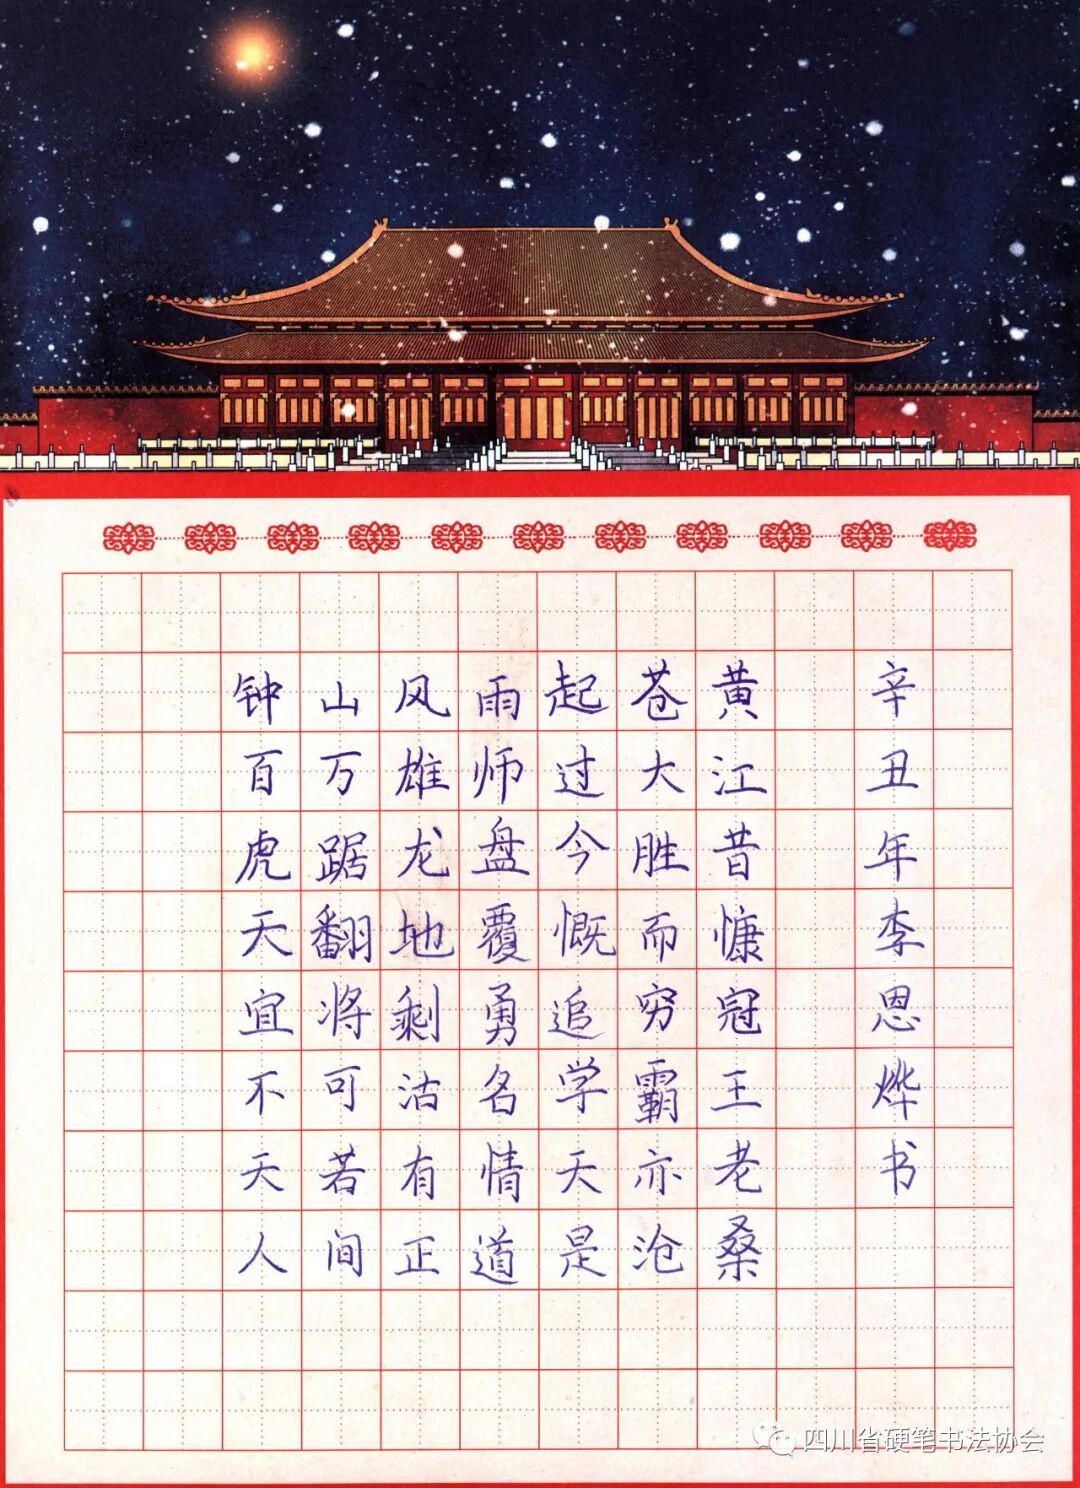 钟山风雨起苍黄
百万雄师过大江
虎踞龙盘今胜昔
天翻地覆慨而慷
宜将剩勇追穷冠
不可沽名学霸王
天若有情天亦老
人间正道是沧桑
辛丑年李恩烨书
四川省硬笔书法协会